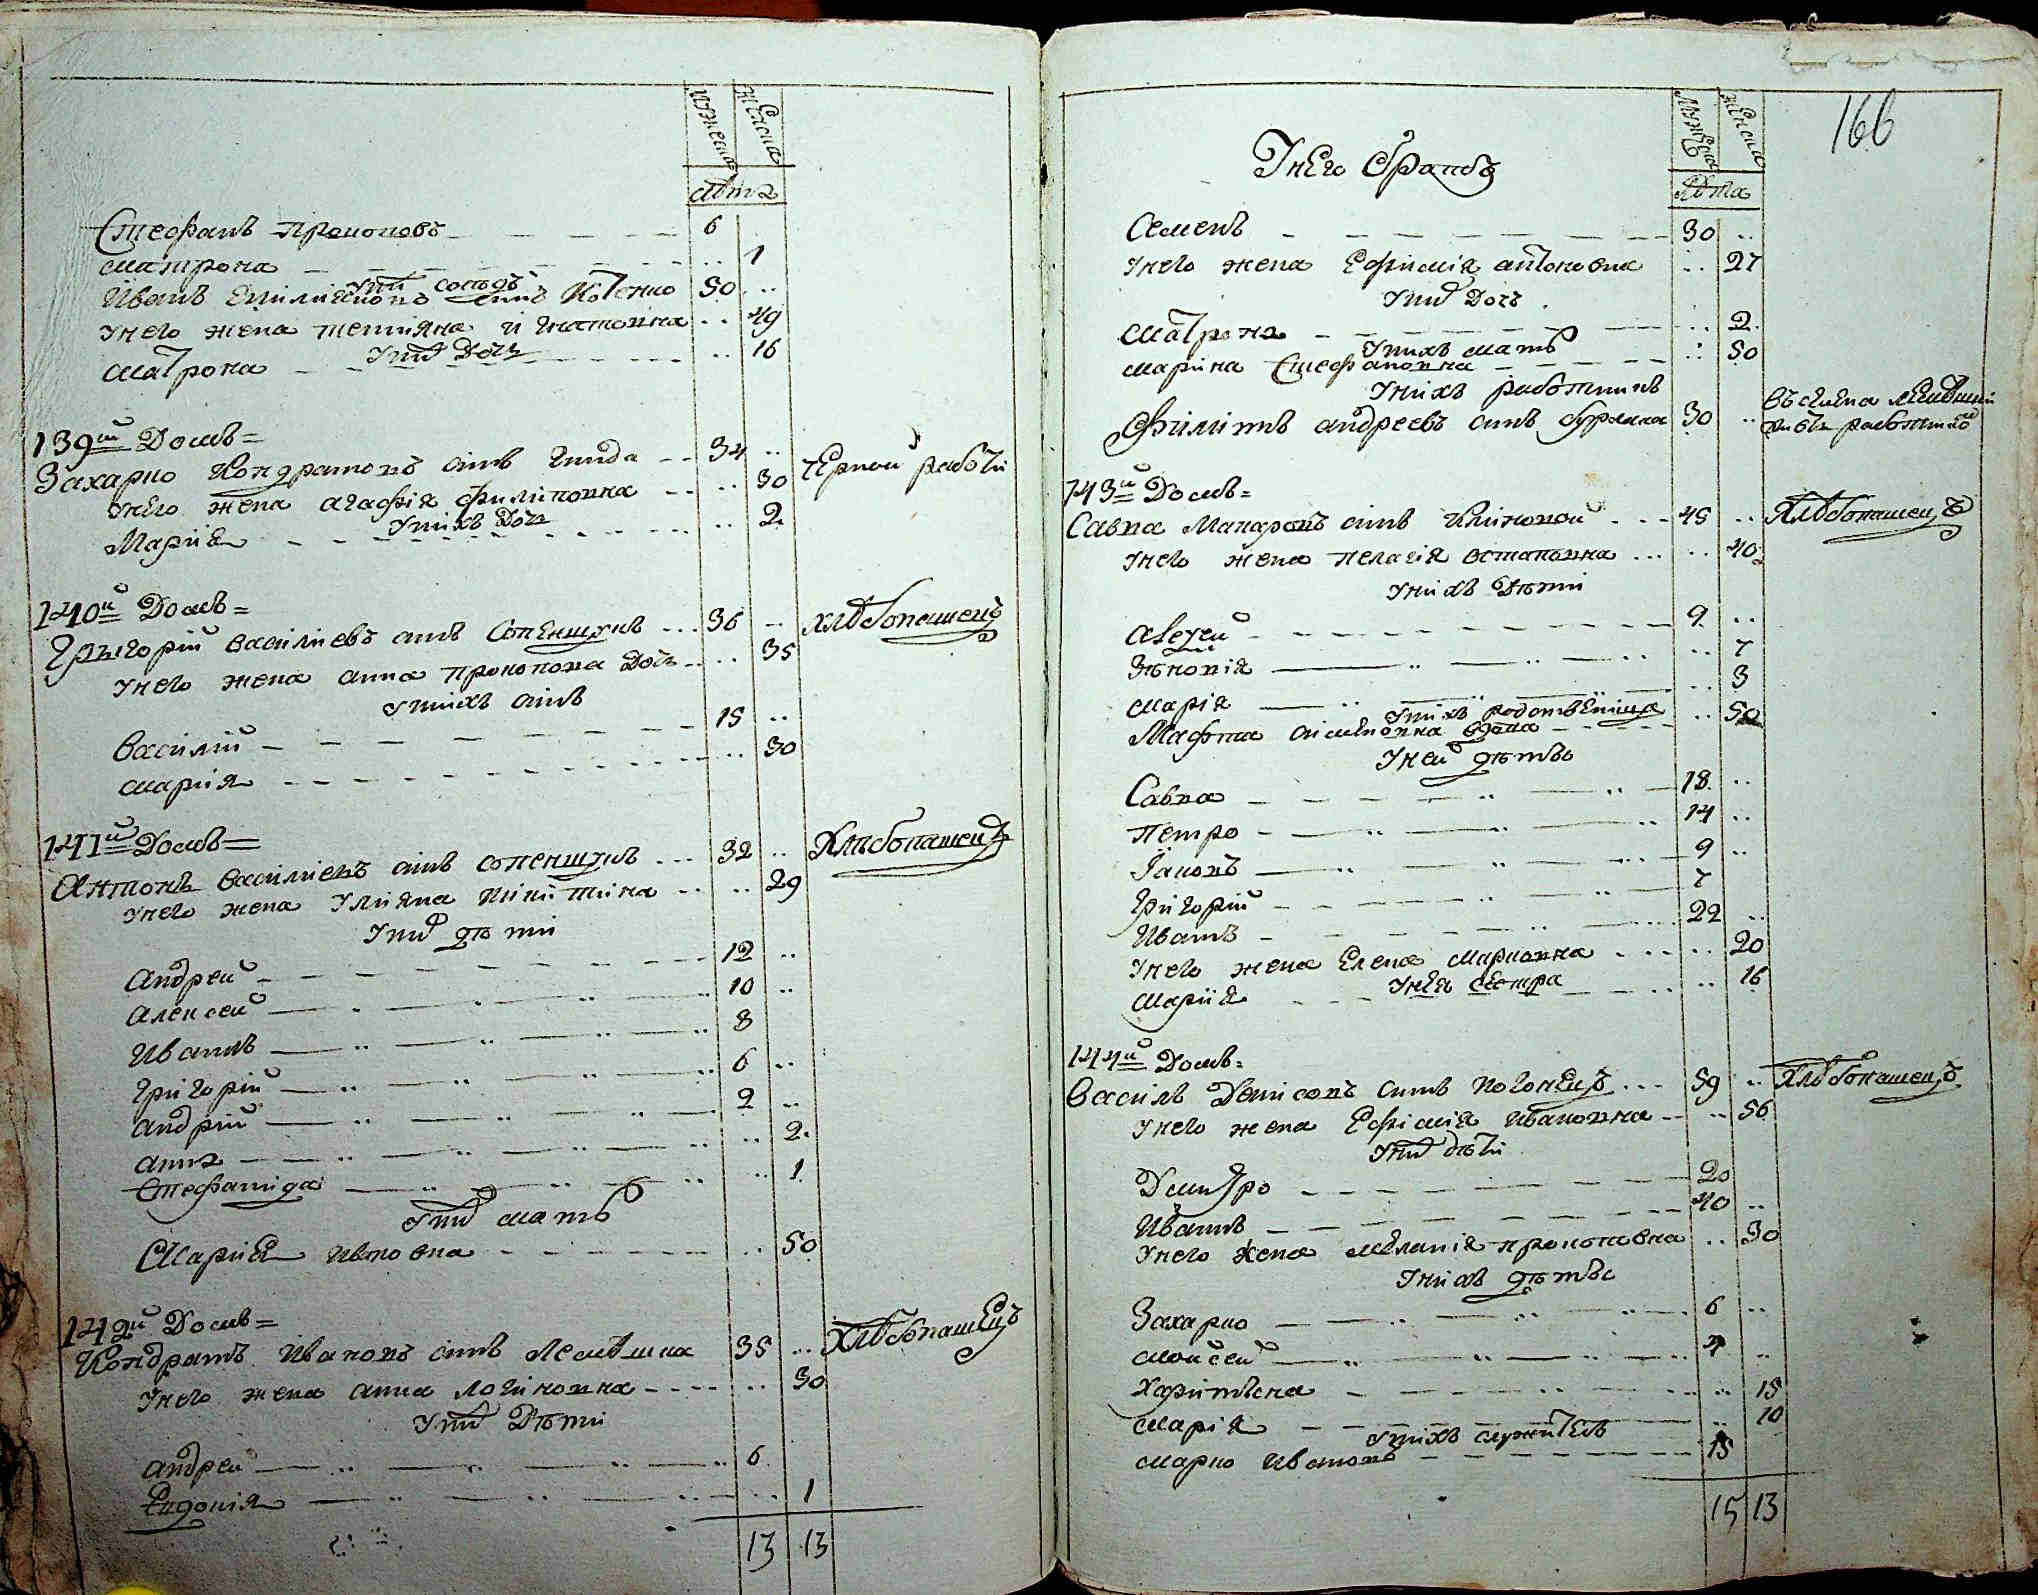 Мужеска
Женска
лѣта
Стефанъ Прокоповъ 6
Матрона 1
У них соседъ
Иванъ Емилияновъ синъ Котенко 50
Унего жена Тетияна Игнатовна 49
Уних Дочь
Матрона 16
139й Домъ=
Захарко Кондратовъ синъ Гнида 34 Черной работи
Унего жена Агафія Филиповна 30
Унихъ Дочь
Марїя 2
140й Домъ=
Григорій Василиевъ синъ Сопенщукъ 36 Хлѣбопашецъ
Унего жена Анна Прокопова Дочь 35
Унихъ синъ
Василій 15
Марїя 30
141й Домъ=
Антонъ Василиевъ синъ Сопенщукъ 32 Хлѣбопашецъ
Унего жена Улияна Никитина 29
Уних дѣти
Андрей 12
Алексей 10
Иванъ 8
Григорій 6
Андрій 2
Анна 2
Стефанида 1
Уних мать
Марїя Ивановна 50
142й Домъ=
Кондратъ Ивановъ синъ Лемѣшка 35 Хлѣбопашецъ
Унего жена Анна Логиновна 30
Уних Дѣти
Андрей 6
Евдокія 1
13 13
Мужеска
Женска
166
Унего братъ
Лѣта
Семенъ 30
Унего жена Ефимія Антоновна 27
Уних Дочь
Матрона 2
Унихъ мать
Марина Стефановна 50
Унихъ работникъ
Филипъ Андреевъ синъ Бурлака 30
143й Домъ=
Савка Макаровъ синъ Климовой 45 Хлѣбопашецъ
Унего жена Пелагія Остаповна 40
Унихъ Дѣти
Авдей 9
Зѣновія 7
Марія 3
Унихъ родственница
Марфта Сименовна вдова 50
Уней дѣтьи
Савка 18
Петро 14
Яковъ 9
Григорій 7
Иванъ 22
Унего жена Елена Марковна 20
Унея сестра
Марїя 16
144й Домъ=
Василь Денисовъ синъ Погонецъ 59 Хлѣбопашецъ
Унего жена Ефимія Ивановна 56
Уних дѣти
Дмитро 20
Иванъ 40
Унего жена Меланія Прокоповна 30
Унихъ дѣтьи
Захарко 6
Моисей 4
Харитѣна 15
Марія 10
Унихъ служитель
Марко Ивановъ 15
15 13